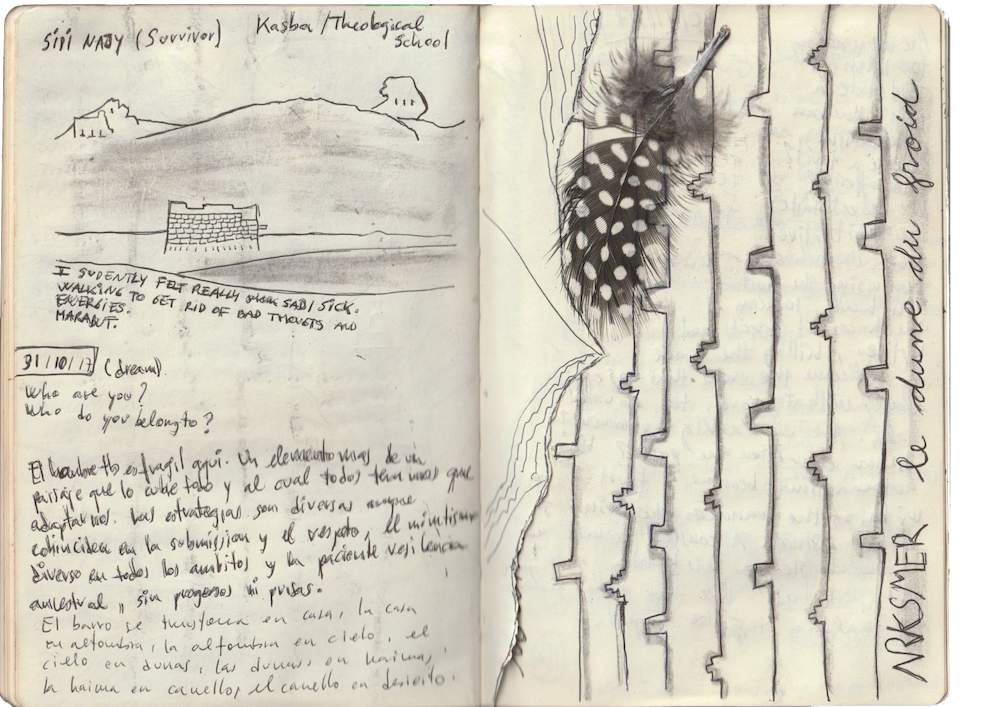 SIDI NAJY (Survivor)
Kasba / Theological
School
I SUDENTLY FELT REALLY SAD/SICK.
WALKING TO GET RID OF BAD THOUGTS AND
ENERGIES.
MARABUT.
31/10/17 (dream)
Who are you?
Who do you belong to?
El hombre es fragil aqui. Un elemento mas de un
paisaje que lo cubre todo y al cual todos tenemos que
adaptarnos. Las estrategias son diversas aunque
cohinciden en la submission y el respeto, el mimetismo
diverso en todos los ambitos y la paciente resilencia
ancestral, sin progresos ni prisas.
El barro se transforma en casa, la casa
en alfombra, la alfombra en cielo, el
cielo en dunas, las dunas en haimas,
la haima en camello, el camello en desierto.
NRKSMER le dune du froid